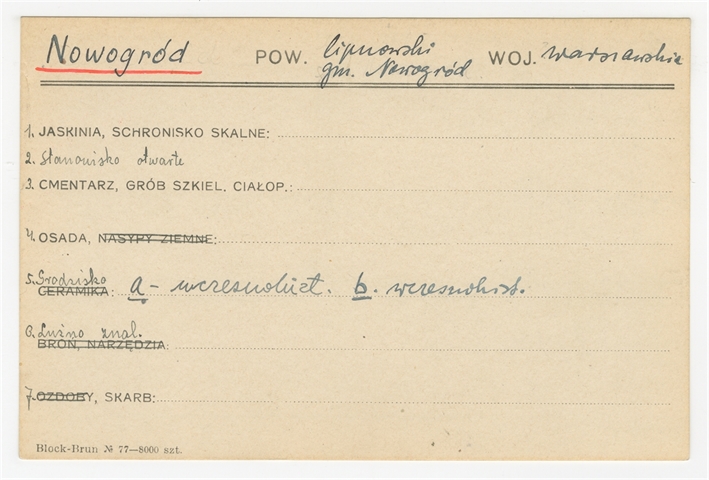 Nowogród POW. lipnowski WOJ. warszawskie
gm. Nowogród
1. JASKINIA, SCHRONISKO SKALNE:
2. Stanowisko otwarte
3. CMENTARZ, GRÓB SZKIEL. CIAŁOP.:
4. OSADA, NASYPY ZIEMNE:
5. Grodzisko
CERAMIKA: a - wczesnohist. b. wczesnohist.
6. Luźno znal.
BROŃ, NARZĘDZIA:
7. OZDOBY, SKARB:
Block-Brun № 77—8000 szt.